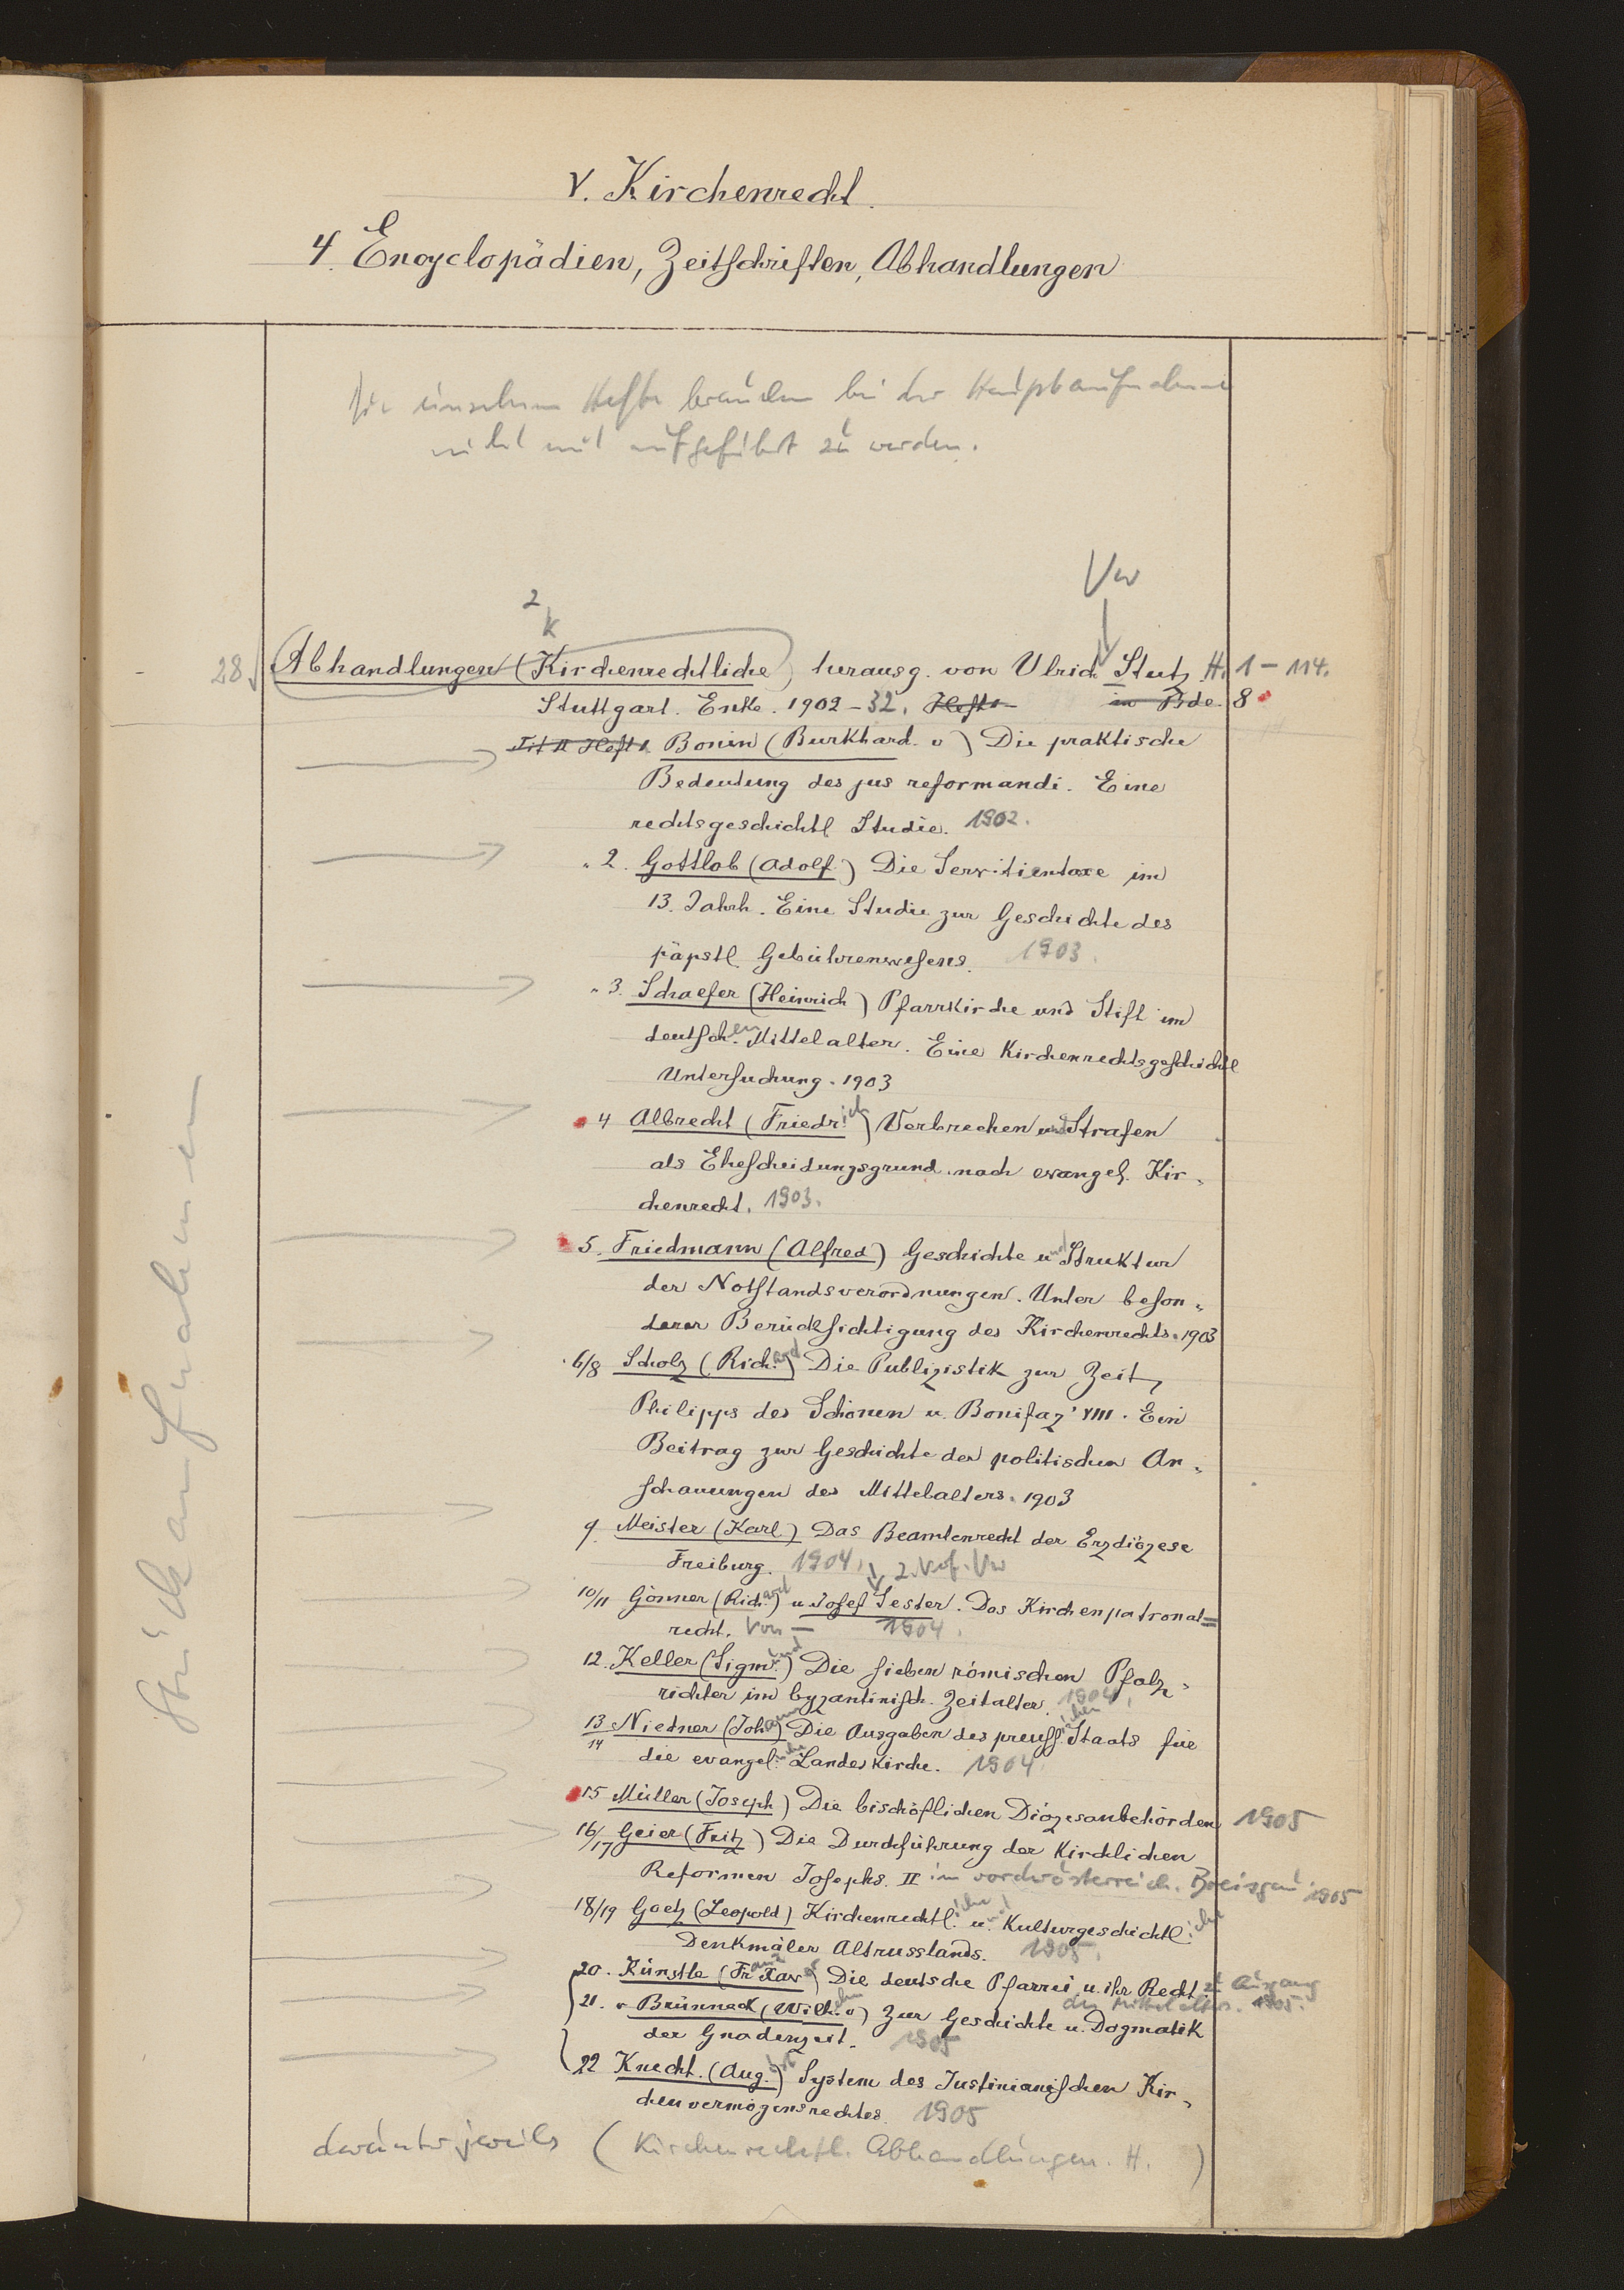 V. Kirchenrecht.
4. Encyclopädien, Zeitschriften, Abhandlungen
Die einzelnen Hefte brauchen bei der Hauptaufnahme
nicht mit aufgeführt zu werden.
Vw
2
K
28 Abhandlungen (Kirchenrechtliche) herausg. von Ulrich Stutz H. 1 - 114.
Stuttgart. Enke. 1902 - 32. Heft 1 in Bde 8
Tit II Heft 1. Bonin (Burkhard v) Die praktische
Bedeutung des jus reformandi. Eine
rechtsgeschichtl Studie. 1902.
" 2. Gottlob (Adolf) Die Servitientaxe im
13. Jahrh. Eine Studie zur Geschichte des
päpstl. Gebührenwesens. 1903.
" 3. Schaefer (Heinrich) Pfarrkirche und Stift im
deutschen Mittelalter. Eine Kirchenrechtsgeschichtl
Untersuchung. 1903
4 Albrecht (Friedrich) Verbrechen und Strafen
als Ehescheidungsgrund nach evangel. Kir-
chenrecht. 1903.
5. Friedmann (Alfred) Geschichte und Struktur
der Notstandsverordnungen. Unter beson-
derer Berücksichtigung des Kirchenrechts. 1903
6/8 Scholz (Richard) Die Publizistik zur Zeit
Philipps des Schönen u. Bonifaz' VIII. Ein
Beitrag zur Geschichte der politischen An-
schauungen des Mittelalters. 1903
9. Meister (Karl) Das Beamtenrecht der Erzdiözese
Freiburg. 1904. 2. Verf. Vw
10/11 Gönner (Richard) u Josef Sester. Das Kirchenpatronat=
recht. Von — 1904.
12. Keller (Sigmund) Die sieben römischen Pfalz-
richter im byzantinisch. Zeitalter. 1904.
13/14 Niedner (Johannes) Die Ausgaben des preussischen Staats für
die evangelische Landeskirche. 1904
15 Müller (Joseph) Die bischöflichen Diözesanbehörden 1905
16/17 Geier (Fritz) Die Durchführung der Kirchlichen
Reformen Josephs. II im vorderösterreich. Breisgau 1905
18/19 Goetz (Leopold) Kirchenrechtliche und Kulturgeschichtliche
Denkmäler Altrusslands. 1905.
20. Künstle (Franz Xaver) Die deutsche Pfarrei u. ihr Recht zu Ausgang
des Mittelalters. 1905.
21. v Brünneck (Wilhelm v) Zur Geschichte u. Dogmatik
der Gnadenzeit. 1905
22 Knecht. (August) System des Justinianischen Kir-
chenvermögensrechtes. 1905
darunter jeweils (Kirchenrechtl. Abhandlungen. H. )
Stückaufnahmen